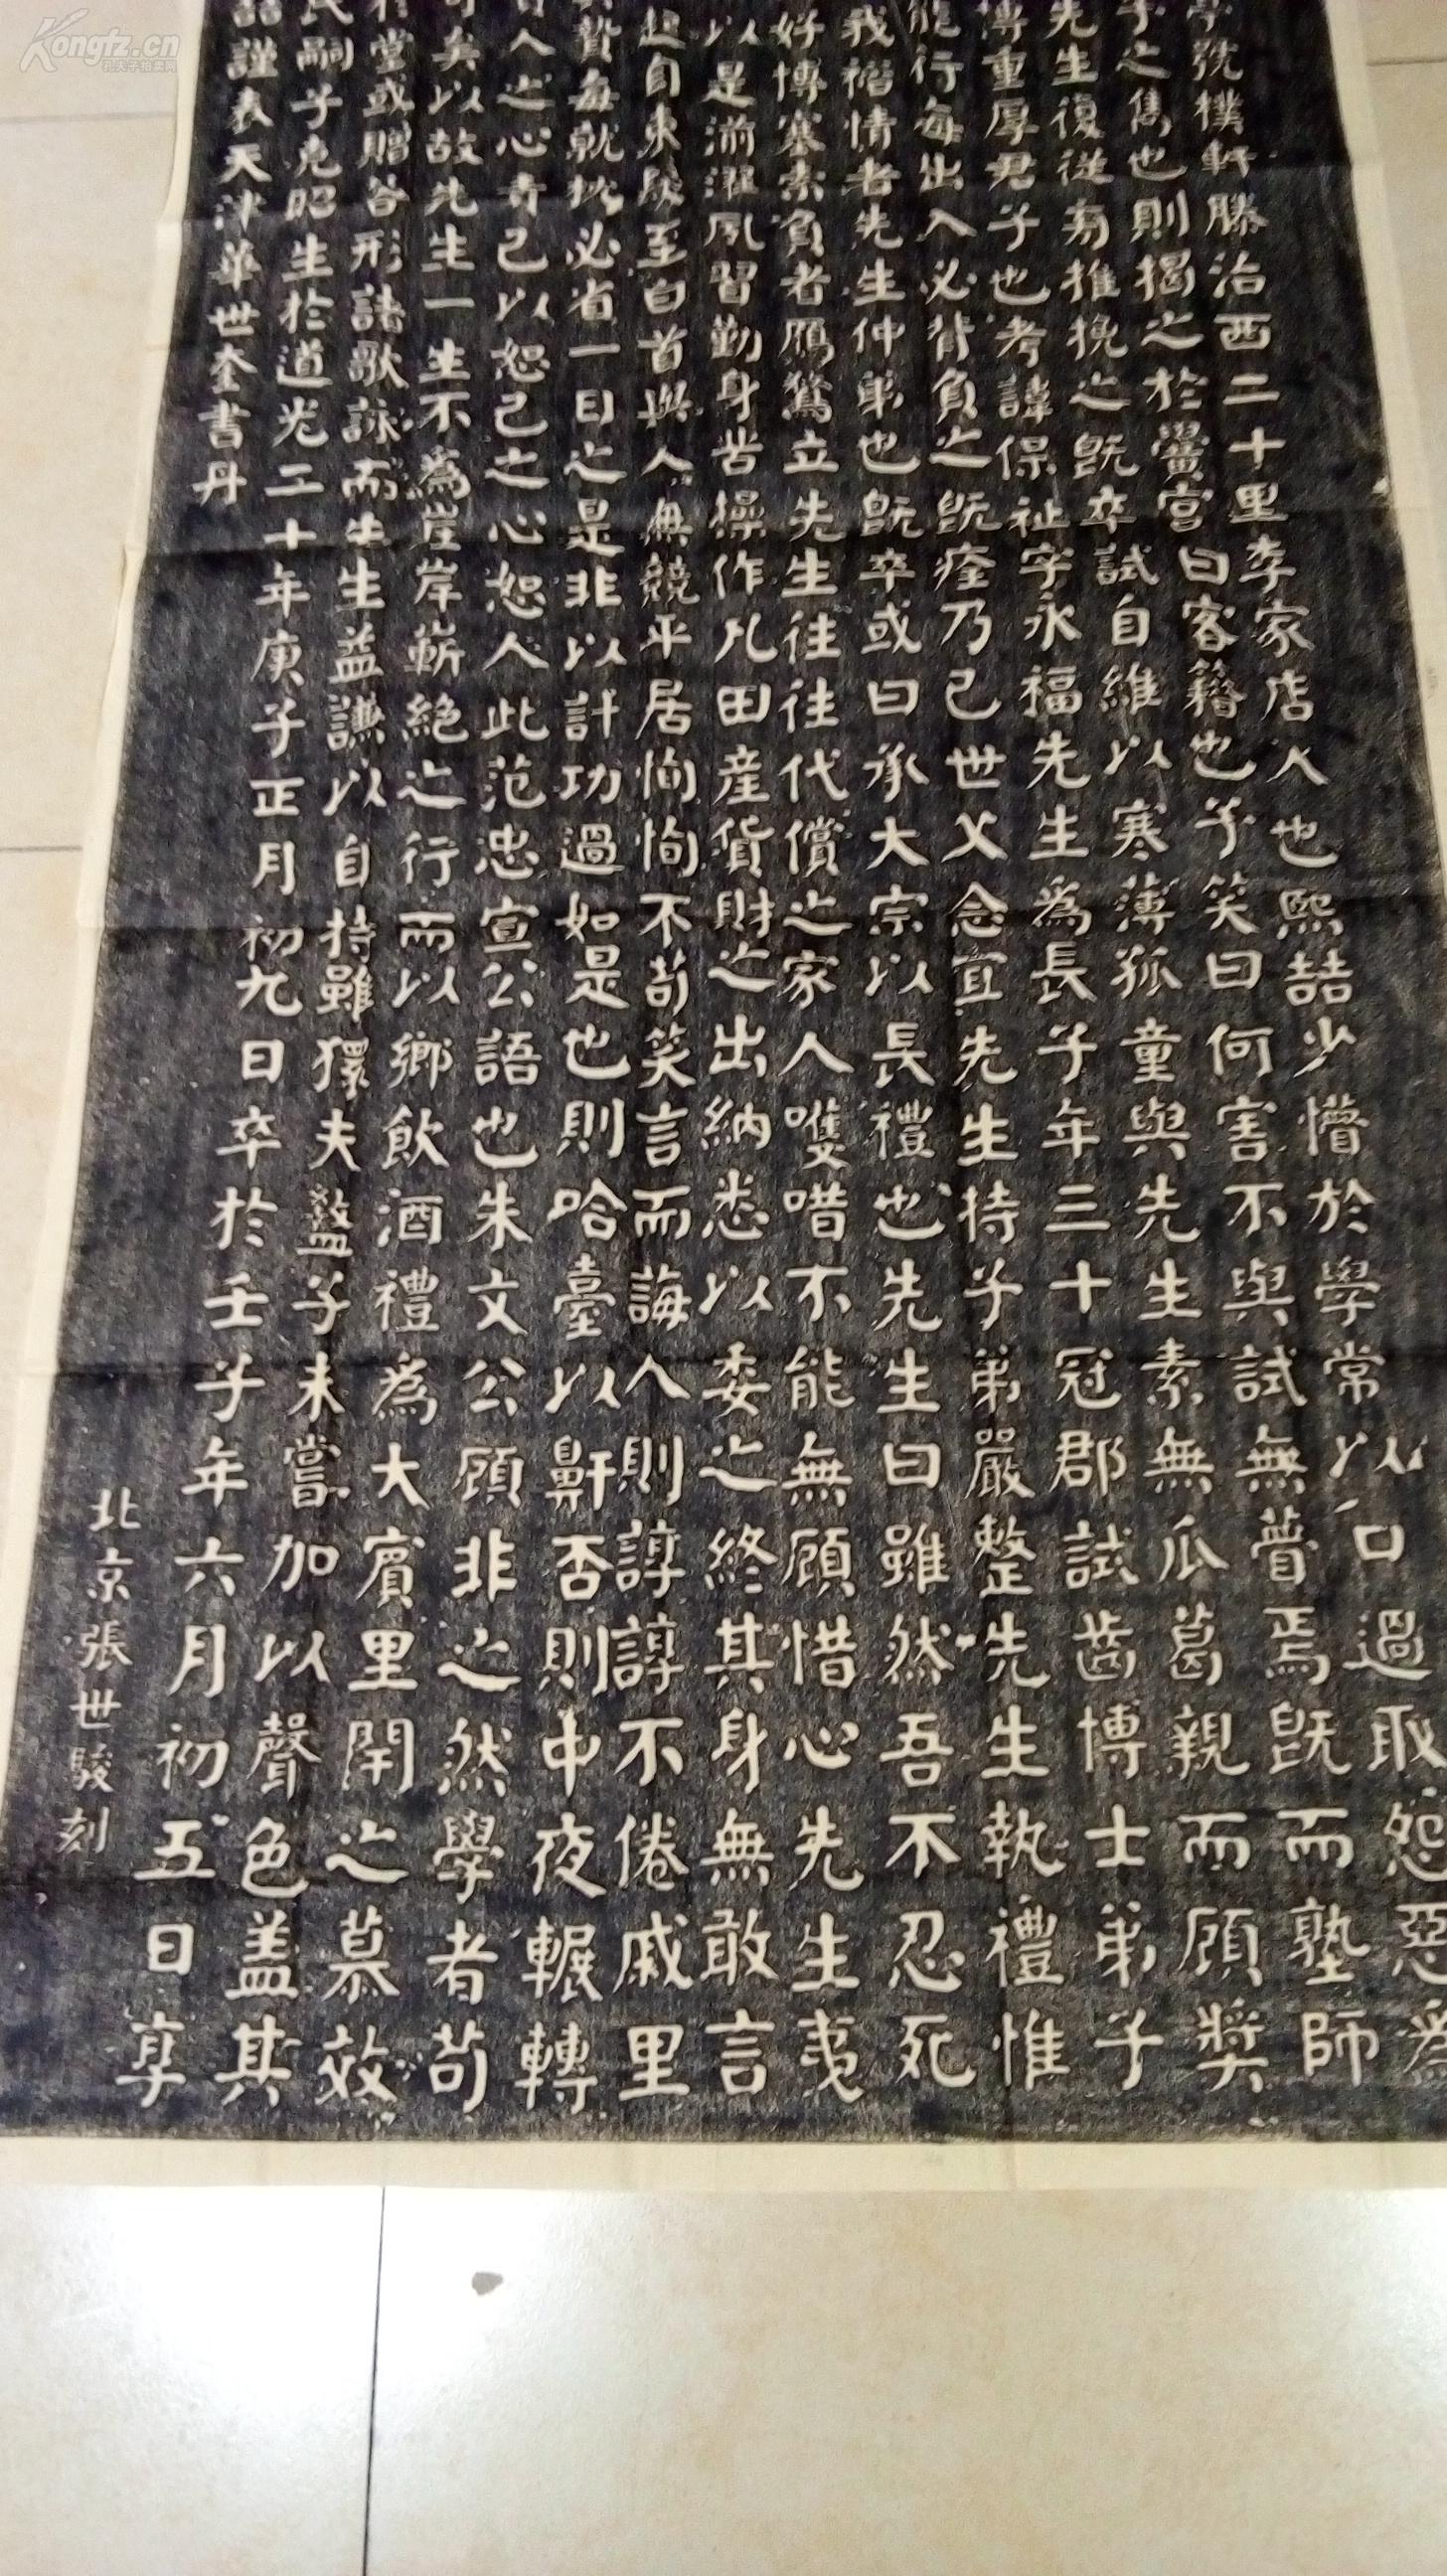 Kongfz.cn
孔夫子拍卖网
學號樸軒滕治西二十里李家店人也熙喆少懵於學常以口過取怨惡為
子之雋也則揭之於黌宮曰客籍也予笑曰何害不與試無瞢焉既而塾師
先生復從旁推挽之既卒試自維以寒薄孤童與先生素無瓜葛親而顧獎
博重厚君子也考諱保祉字永福先生為長子年三十冠郡試齒博士弟子
能行每出入必背負之既痊乃已世父念宜先生持子弟嚴整先生執禮惟
我稭情者先生仲弟也既卒或曰承大宗以長禮也先生曰雖然吾不忍死
好博塞索負者鴈鶩立先生往往代償之家人嚄唶不能無顧惜心先生夷
以是湔濯夙習勤身苦操作凡田產貨財之出納悉以委之終其身無敢言
起自束髮至白首與人無競平居恂恂不苟笑言而誨人則諄諄不倦戚里
贄每就枕必省一日之是非以計功過如是也則哈臺以鼾否則中夜輾轉
人之心責己以恕己之心恕人此范忠宣公語也朱文公顧非之然學者苟
矣以故先生一生不為崖岸嶄絕之行而以鄉飲酒禮為大賓里閈之慕效
堂或贈答形諸歌詠而先生益謙以自持雖獧夫盭子未嘗加以聲色蓋其
民嗣子克昭生於道光二十年庚子正月初九日卒於壬子年六月初五日享
喆謹表天津華世奎書丹
北京張世駿刻